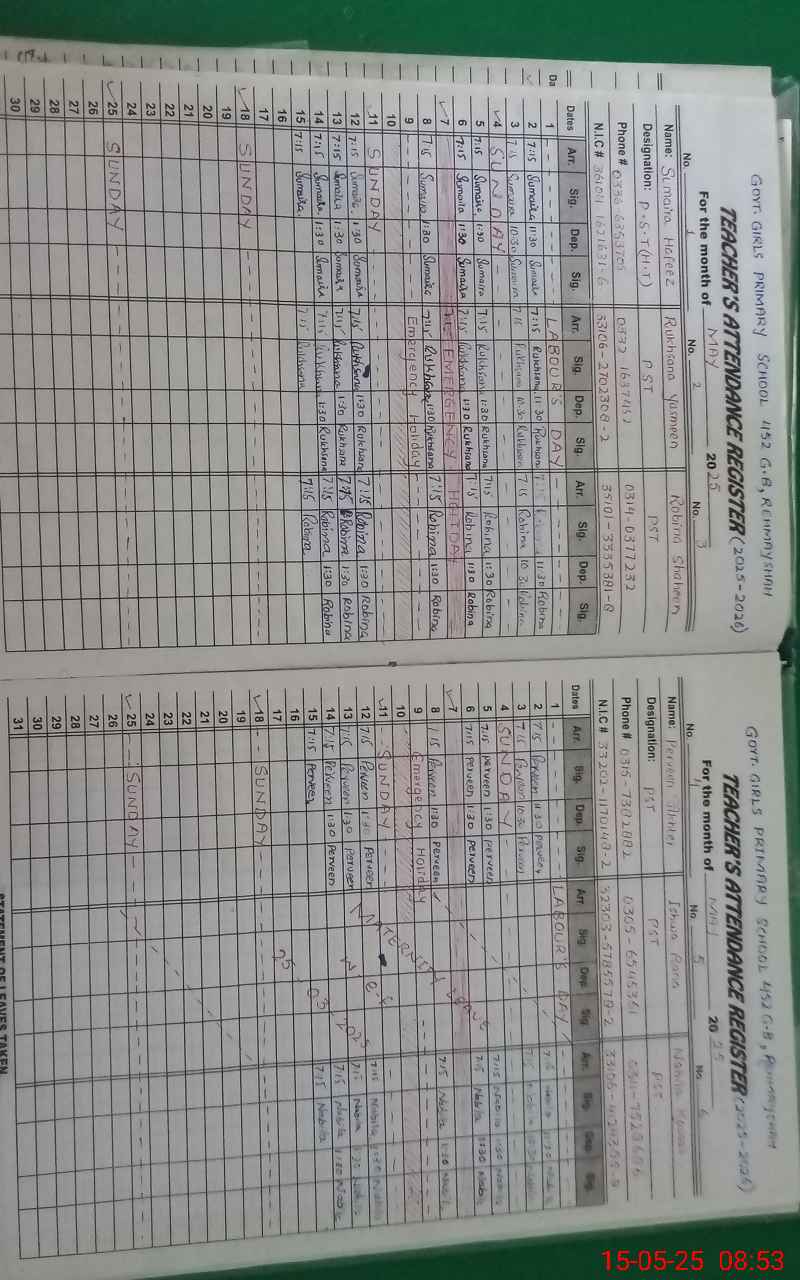 GOVT. GIRLS PRIMARY SCHOOL 452 G.B, REHMAYSHAH
TEACHER'S ATTENDANCE REGISTER (2025-2026)
For the month of MAY 2025
No. 1 No. 2 No. 3
Name: Sumaira Hafeez Rukhsana Yasmeen Robina Shaheen
Designation: P.S.T(H.T) PST PST
Phone # 0336-6353705 0332 1637452 0314-0377232
N.I.C # 33106-2702308-2 35101-3335381-8
Dates Arr. Sig. Dep. Sig. Arr. Sig. Dep. Sig. Arr. Sig. Dep. Sig.
1 LABOUR'S DAY
2 7:15 Sumaira 11:30 Sumaira 7:15 Rukhsana 11:30 Rukhsana 11:30 Robina
3 7:15 Sumaira 10:30 Sumaira 7:15 Rukhsana 10:30 Rukhsana 7:15 Robina 10:30 Robina
4 SUNDAY
5 7:15 Sumaira 1:30 Sumaira 7:15 Rukhsana 1:30 Rukhsana 7:15 Robina 1:30 Robina
6 7:15 Sumaira 1:30 Sumaira 7:15 Rukhsana 1:30 Rukhsana 7:15 Robina 1:30 Robina
7 EMERGENCY HOLIDAY
8 7:15 Sumaira 1:30 Sumaira 7:15 Rukhsana 1:30 Rukhsana 7:15 Robina 1:30 Robina
9 Emergency Holiday
10
11 SUNDAY
12 7:15 Sumaira 1:30 Sumaira 7:15 Rukhsana 1:30 Rukhsana 7:15 Robina 1:30 Robina
13 7:15 Sumaira 1:30 Sumaira 7:15 Rukhsana 1:30 Rukhsana 7:15 Robina 1:30 Robina
14 7:15 Sumaira 1:30 Sumaira 7:15 Rukhsana 1:30 Rukhsana 7:15 Robina 1:30 Robina
15 7:15 Sumaira 7:15 Rukhsana 7:15 Robina
16
17
18 SUNDAY
19
20
21
22
23
24
25 SUNDAY
26
27
28
29
30
GOVT. GIRLS PRIMARY SCHOOL 452 G.B, REHMAYSHAH
TEACHER'S ATTENDANCE REGISTER (2025-2026)
For the month of MAY 2025
No. 4 No. 5 No. 6
Name: Perveen Akhter Ishwa Nabila
Designation: PST PST PST
Phone # 0315-7382882 0305-6545361
N.I.C # 33202-1170148-2 32303-5785578-2
Dates Arr. Sig. Dep. Sig. Arr. Sig. Dep. Sig. Arr. Sig. Dep. Sig.
1 LABOUR'S DAY
2 7:15 Perveen 11:30 Perveen 7:15 Nabila 11:30 Nabila
3 7:15 Perveen 10:30 Perveen 7:15 Nabila 10:30 Nabila
4 SUNDAY
5 7:15 Perveen 1:30 Perveen 7:15 Nabila 1:30 Nabila
6 7:15 Perveen 1:30 Perveen 7:15 Nabila 1:30 Nabila
7
8 7:15 Perveen 1:30 Perveen 7:15 Nabila 1:30 Nabila
9 Emergency Holiday
10
11 SUNDAY
12 7:15 Perveen 1:30 Perveen 7:15 Nabila 1:30 Nabila
13 7:15 Perveen 1:30 Perveen 7:15 Nabila 1:30 Nabila
14 7:15 Perveen 1:30 Perveen 7:15 Nabila 1:30 Nabila
15 7:15 Perveen 7:15 Nabila
16
17
18 SUNDAY
19
20
21
22
23
24
25 SUNDAY
26
27
28
29
30
31
STATEMENT OF LEAVES TAKEN
15-05-25 08:53